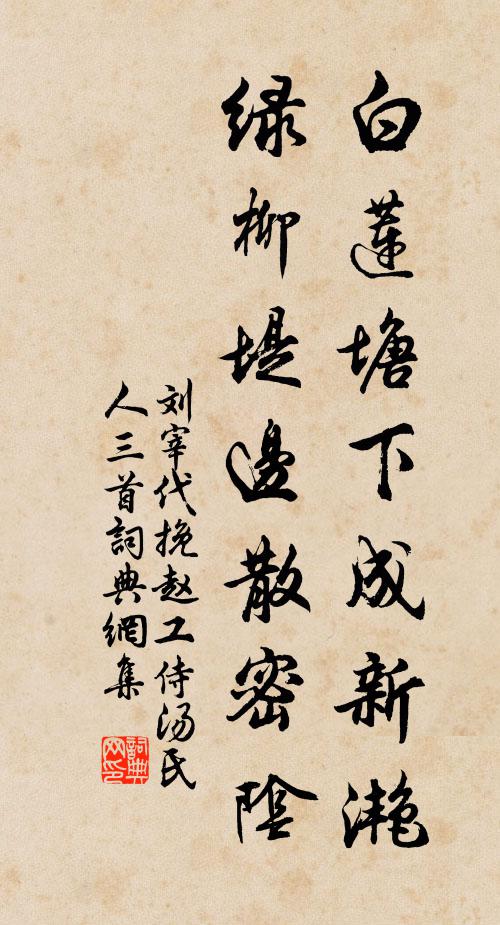 白蓮塘下成新滟
绿柳堤邊散密陰
刘宰代挽赵工侍湯氏
人三首詞典網集
詞典
网印